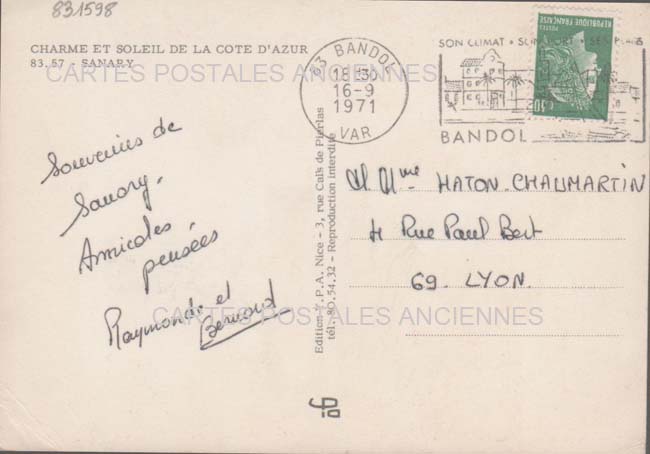 831598
CHARME ET SOLEIL DE LA COTE D'AZUR
83.57 - SANARY
CARTES POSTALES ANCIENNES
83 BANDOL
18H30
16-9
1971
VAR
SON CLIMAT • SON PORT • SES PLAGES
BANDOL
REPUBLIQUE FRANÇAISE
POSTES
0,30
Souvenirs de
Sanary.
Amicales
pensées
Raymonde et
Bernard
Edition T.P.A. Nice - 3, rue Caïs de Pierlas
tél. 80.54.32 - Reproduction interdite
M Mme HATON-CHAUMARTIN
4 Rue Paul Bert
69. LYON.
CARTES POSTALES ANCIENNES